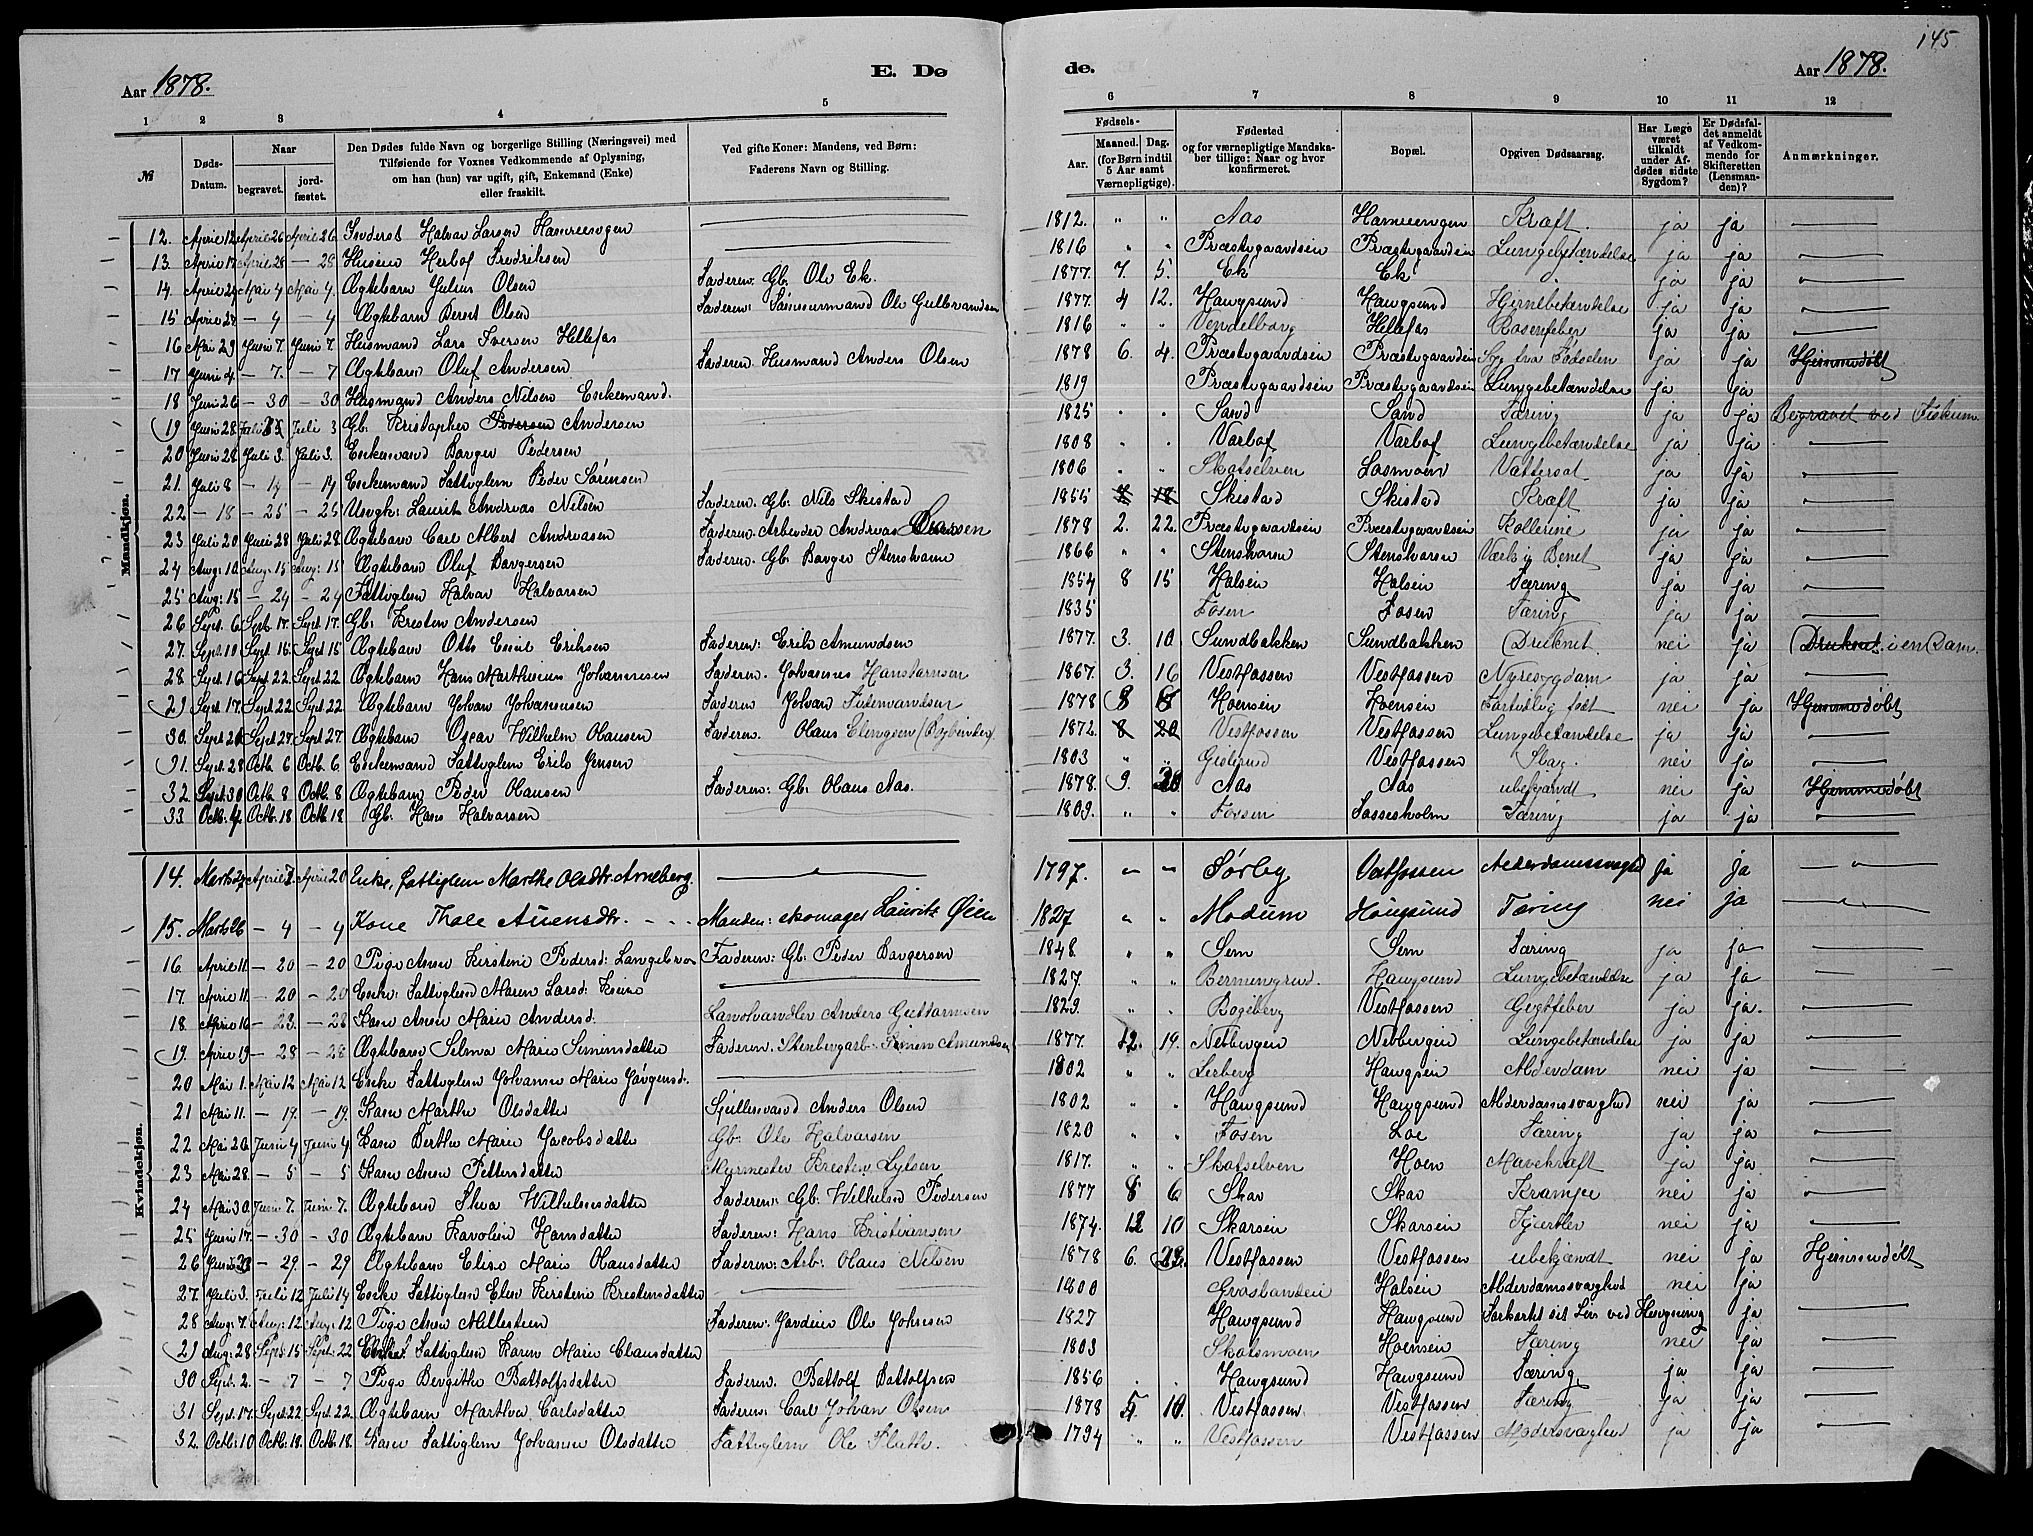 145
Aar 1878.
E. Dø
de.
Aar 1878.
1 2 3 4 5
6 7 8 9 10 11 12
№
Døds-Datum.
Naar
begravet.
jordfæstet.
Den Dødes fulde Navn og borgerlige Stilling (Næringsvei) med
Tilføiende for Voxnes Vedkommende af Oplysning,
om han (hun) var ugift, gift, Enkemand (Enke)
eller fraskilt.
Ved gifte Koner: Mandens, ved Børn:
Faderens Navn og Stilling.
Fødsels-
Aar.
Maaned. Dag.
(for Børn indtil
5 Aar samt
Værnepligtige).
Fødested
og for værnepligtige Mandska-
ber tillige: Naar og hvor
konfirmeret.
Bopæl.
Opgiven Dødsaarsag.
Har Læge
været
tilkaldt
under Af-
dødes sidste
Sygdom?
Er Dødsfal-
det anmeldt
af Vedkom-
mende for
Skifteretten
(Lensman-
den)?
Anmærkninger.
Mandkjøn.
12. April 12 April 26 April 26 Inderst Halvor Larsen 1812. " " Aas Kræft. ja ja
13. April 17 April 28 — 28 Fredriksen 1816 " " Præstegaardsein Præstegaardsein Lungebetændelse ja ja
14. April 29 Mai 4 Mai 4. Ægtebarn Julius Olsen Faderen: Gb. Ole Ek. 1877. 7. 5. Ek Ek ja ja
15 April 28 — 4 — 4 Ægtebarn Bernt Olsen Faderen: Ole Gulbrandsen 1877. 4 12. Haugsund Haugsund Hjernebetændelse ja ja
16 Mai 29 Juni 7. Juni 7. Husmand Lars Iversen Hellefos 1816 " " Vendelborg Hellefos Rosenfeber ja ja
17 Juni 4. — 7. — 7 Ægtebarn Oluf Andersen Faderen: Husmand Anders Olsen 1878 6. 4. Præstegaardsein Præstegaardsein Syg fra Fødselen ja ja Hjemmedøbt
18 Juni 26 — 30 — 30 Husmand Anders Nilsen Enkemand. 1819 Præstegaardsein Præstegaardsein Lungebetændelse ja ja
19 Juni 28 Juli 3 Juli 3 Gb. Kristopher Pedersen Andersen 1825 Sand Sand Tæring ja ja Begravet ved Fiskum
20 Juni 28 Juli 3. Juli 3. Enkemand Borger Pedersen 1808 Varlof Varlof Lungebetændelse ja ja
21. Juli 8 — 14 — 14 Enkemand Fattiglem Peder Sørensen 1806 " " Skotselven Losmoen Vattersot ja ja
22 — 18 — 25 — 25 Ungk: Laurits Andreas Nilsen Faderen. Gb: Nils Skistad 1855 8 18 Skistad Skistad Kræft ja ja
23 Juli 20 Juli 28 Juli 28 Ægtebarn Carl Albert Andreasen Faderen. Arbeider Andreas 1878 2. 22. Præstegaardsein Præstegaardsein Kollerine ja ja
24 Aug: 10 Aug: 15 Aug: 15 Ægtebarn Oluf Borgersen Faderen. Gb. Borger Stenshorn 1866 " " Stenshorn Stenshorn Værk i Benet ja ja
25 Aug: 15 — 24 — 24 Fattiglem Halvor Halvorsen 1854 8 15 Halsein Halsein Tæring ja ja
26 Sept. 6 Sept. 17. Sept. 17. Gb: Kresten Andersen 1835 Fosen Fosen Tæring ja ja
27. Sept. 10 Sept 15 Sept 15 Ægtebarn Otto Emil Eriksen Faderen: Erik Amundsen 1877. 3. 10 Sundbakken Sundbakken Druknet. nei ja Druknet. i en Dam.
28 Sept. 16 Sept 22 Sept. 22 Ægtebarn Hans Marthinius Johannesen Faderen. Johannes 1867. 3. 16 Vestfossen Vestfossen Nyresygdom ja ja
29 Sept. 17 Sept. 22 Sept. 22 Ægtebarn Johan Johannesen Faderen Johan 1878 8 Hoensein Hoensein Fortidlig født nei ja Hjemmedøbt
30. Sept. 20 Sept 27. Sept 27. Ægtebarn Oscar Wilhelm Hansen Faderen. Hans 1872. 8 20 Vestfossen Vestfossen Lungebetændelse ja ja
31. Sept. 28 Octb. 6 Octb. 6. Enkemand Fattiglem Erik Jensen 1803 " " Vestfossen Slag. nei ja
32. Sept. 30 Octb. 8 Octb. 8 Ægtebarn Peder Hansen Faderen: Gb: Hans Aas. 1878. 9. 20 Aas Aas ubekjændt nei ja Hjemmedøbt
33. Octb. 4. Octb. 18 Octb. 18 Gb: Hans Halvorsen 1809. " " Fossen Tæring ja ja
Kvindekjøn.
14. Marts 27 April 7. April 20 Enke, fattiglem Marthe Olsdtr. Arneberg. 1797. " " Sørby Vestfossen Alderdomssvaghed ja ja
15. Marts 26 — 4 — 4 Kone Thale Auensdtr. Manden: skomager Lauritz Øien 1827 " " Modum Hougsund Tæring nei ja
16 April 11. — 20 — 20 Pige Anne Kirstine Pedersd: Langebro Faderen: Gb: Peder Borgersen 1848. " " Sem Sem Tæring ja ja
17. April 11. — 20 — 20 Enke: Fattiglem Maren Larsd: 1827. " " Haugsund Lungebetændelse ja ja
18. April 16 — 23. — 28 Kone Anne Marie Andersd: Landhandler Anders 1829. " " Vestfossen Gigtfeber ja ja.
19. April 19 — 28 — 28 Ægtebarn Selma Marie Simensdatter Faderen: Simen Amundsen 1877. 12. 19. Nebbergein Nebbergein Lungebetændelse ja ja
20 Mai 1. Mai 12 Mai 12 Enke Fattiglem Johanne Marie Jørgensd. 1802 " " Lerberg Haugsein Alderdom nei ja
21 Mai 11. — 19. — 19. Kone Marthe Olsdatter Anders Olsen 1802 " " Haugsund Haugsund Alderdomssvaghed nei ja
22 Mai 26 Juni 4 Juni 4 Kone Berthe Marie Jacobsdatter Gb: Ole Halvorsen 1820 " " Fosen Loe Tæring ja ja
23 Mai 28. — 5 — 5 Kone Anne Pettersdatter Murmester Kresten 1817. " " Skotselven Hoen Mavekræft ja ja.
24 Mai 30. Juni 7. Juni 7. Ægtebarn Thea Wilhelmsdatter Faderen: Gb: Wilhelm Pedersen 1877 8 6 Skar Skar Krampe nei ja
25 Juni 17. — 30 — 30 Ægtebarn Karoline Hansdatter Faderen: Hans Kristiansen 1874. 12 10 Skarsein Skarsein nei ja
26 Juni 23 — 29. — 29 Ægtebarn Elise Marie Hansdatter Faderen: Arb: Hans Nilsen 1878 6. 22. Vestfossen Vestfossen ubekjændt nei ja Hjemmedøbt
27. Juli 3. Juli 12 Juli 14 Enke Fattiglem Elen Kirstine Krestensdatter 1800 Halsein Alderdomssvaghed nei ja
28 Aug: 7. Aug: 12 Aug: 12 Pige Anne Faderen: Ole 1827 Haugsund Haugsund Forkortet sit Liv ved Hengning ja
29 Aug: 28 Sept: 15 Sept: 22 Enke Fattiglem Karen Marie Clausdatter 1803 Skotsmoen Hoensein Tæring nei ja
30 Sept. 2. — 7 — 7 Pige Bergithe Battolfsdatter Faderen. Battolf Battolfsen 1856 Haugsund Haugsund Tæring ja ja
31 Sept. 17. Sept. 22 Sept. 22. Ægtebarn Marthea Carlsdatter Faderen: Carl Johan Olsen 1878 5. 10. Vestfossen. Vestfossen Tæring ja ja
32. Octb: 10 Octb. 18. Octb. 18. Kone Fattiglem Johanne Olsdatter Fattiglem Ole 1794 " " Vestfossen Vestfossen ja ja